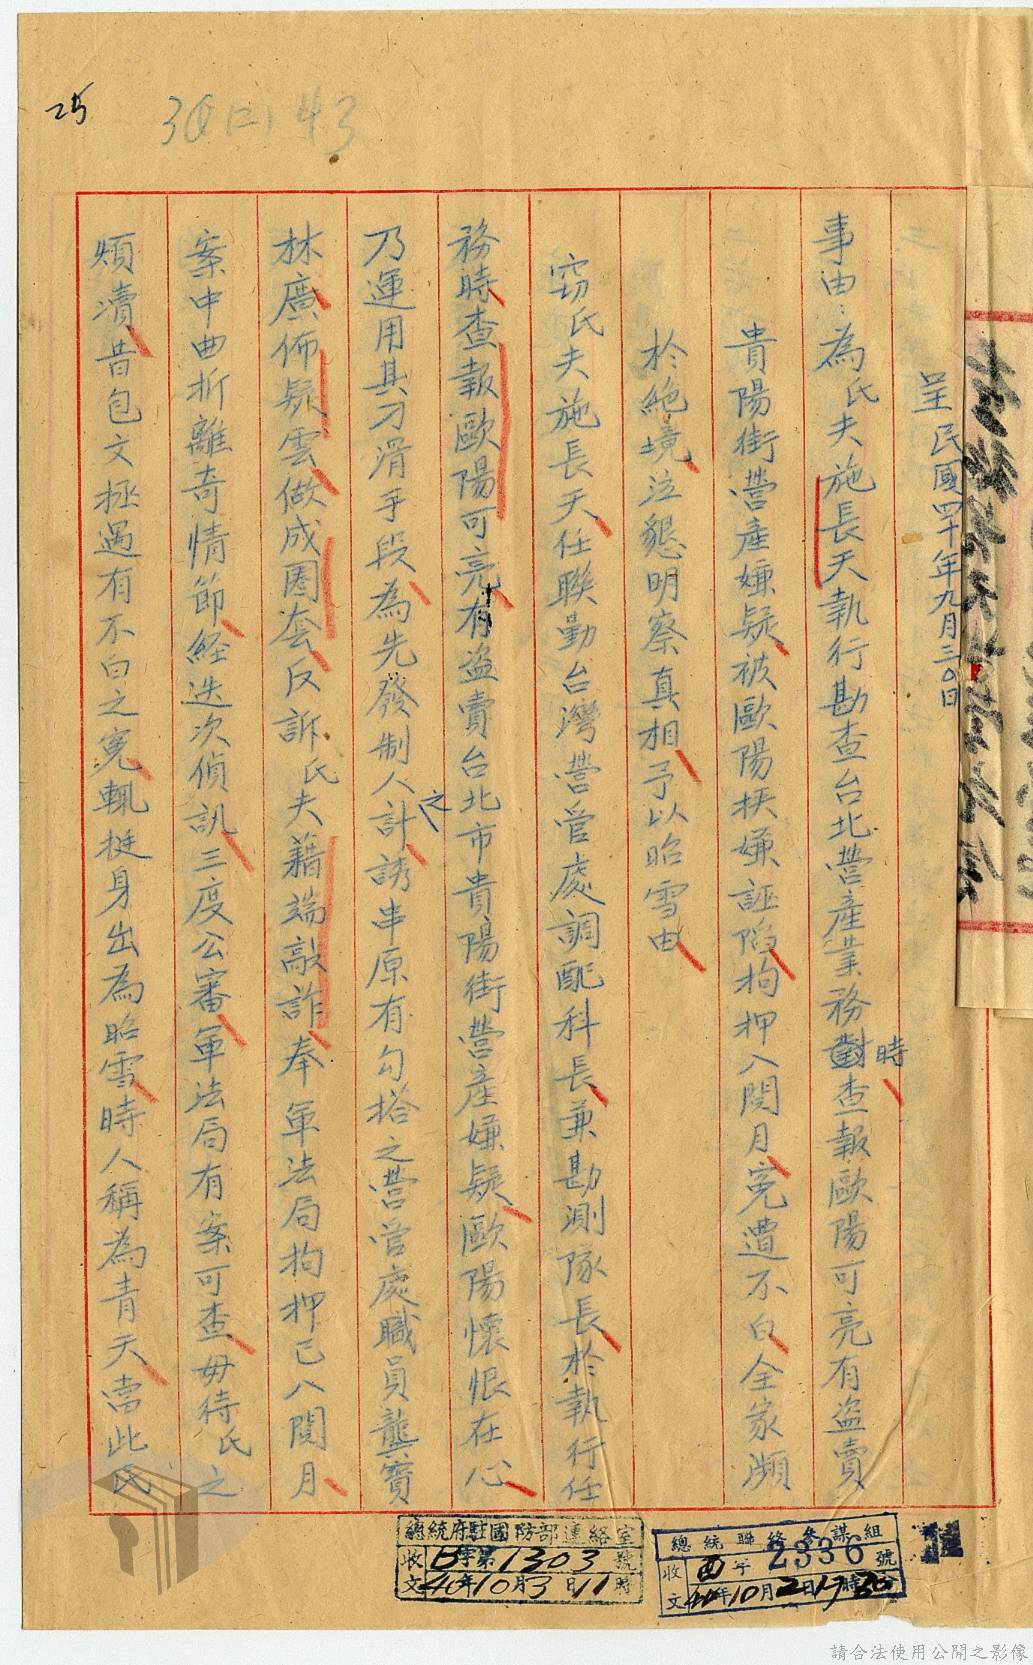 25
30(二)43
呈 民國四十年九月三〇日
事由：為氏夫施長天執行勘查台北營產業務時查報歐陽可亮有盜賣
貴陽街營產嫌疑被歐陽挾嫌誣陷拘押八閱月寃遭不白全家瀕
於絕境泣懇明察真相予以昭雪由
竊氏夫施長天任聯勤台灣營管處調配科長兼勘測隊長於執行任
務時查報歐陽可亮有盜賣台北市貴陽街營產嫌疑歐陽懷恨在心
乃運用其刁滑手段為先發制人之計誘串原有勾搭之營管處職員龔寶
林廣佈疑雲做成圈套反訴氏夫藉端敲詐奉軍法局拘押已八閱月
案中曲折離奇情節經迭次偵訊三度公審軍法局有案可查毋待氏之
煩瀆昔包文拯遇有不白之寃輒挺身出為昭雪時人稱為青天當此民
總統府駐國防部連絡室
收文 字第1303號
40年10月3日11時
總統聯絡參謀組
收文 酉字2336號
40年10月2日17時30分
請合法使用公開之影像